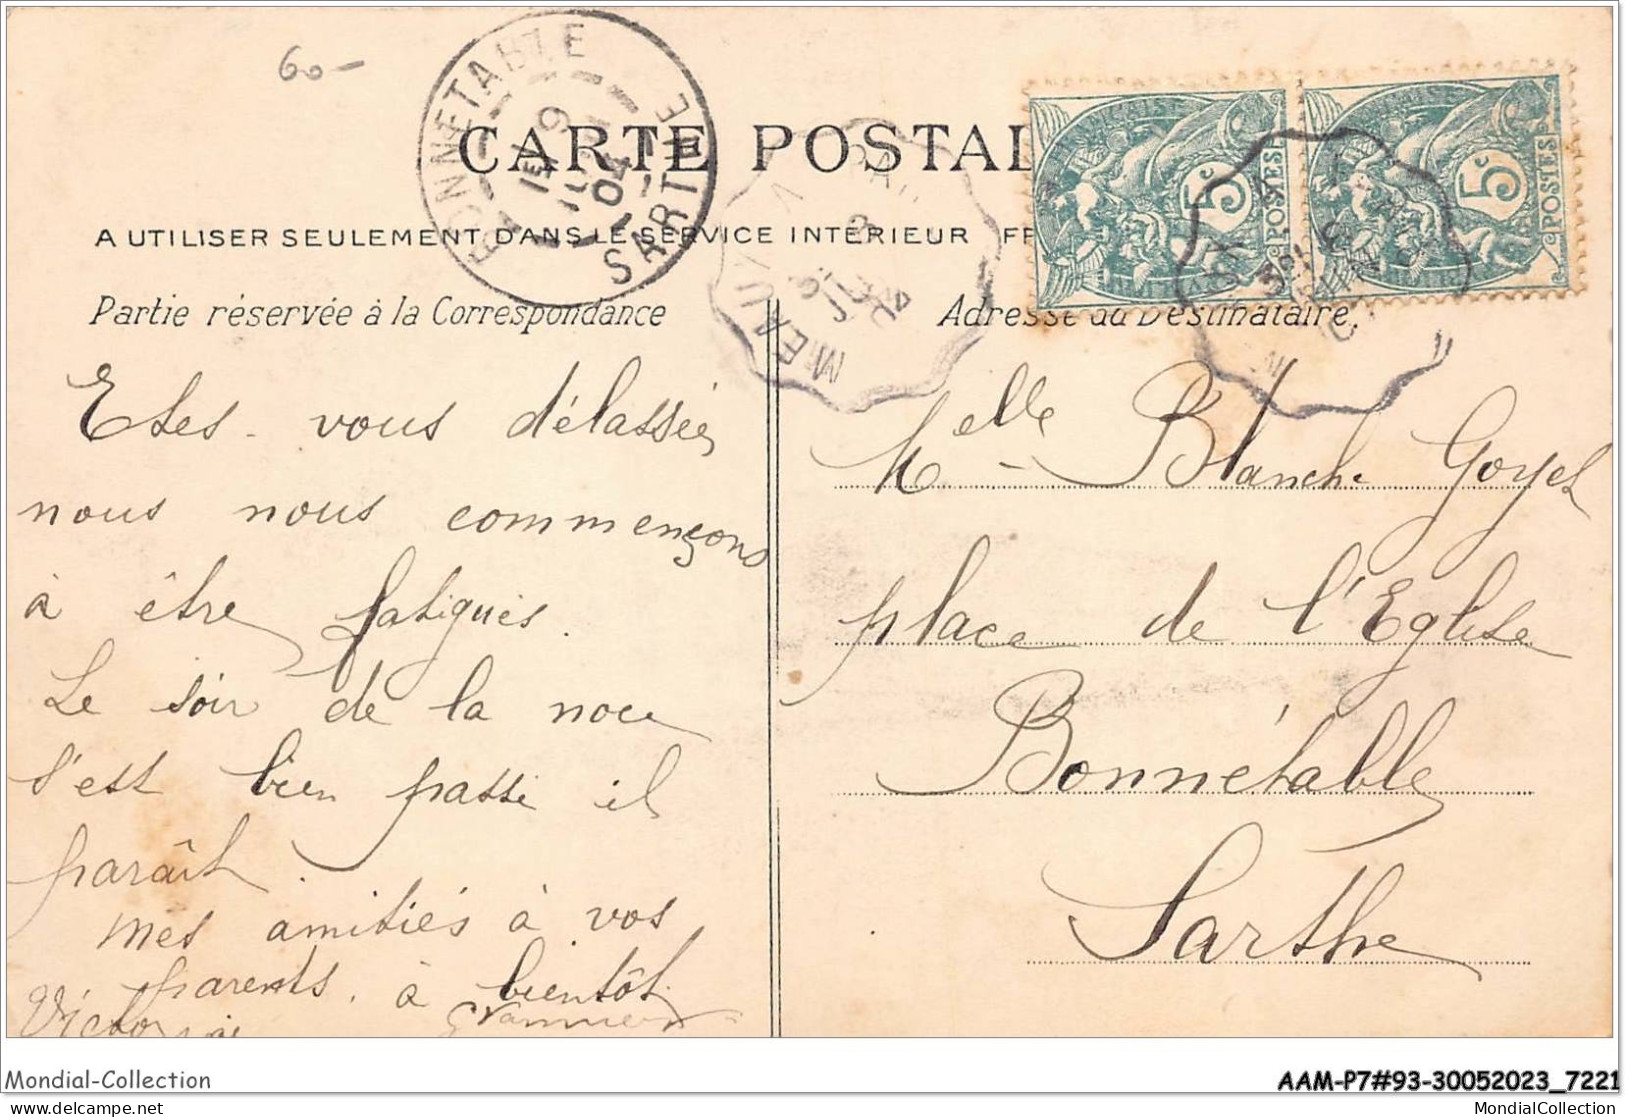 60-
CARTE POSTAL
A UTILISER SEULEMENT DANS LE SERVICE INTÉRIEUR FR
BONNETABLE
9
04
SARTHE
MERU A
3
JUIL
04
5c
POSTES
5c
POSTES
Partie réservée à la Correspondance
Adresse du Destinataire.
Etes-vous délassées
nous nous commençons
à être fatigués.
Le soir de la noce
s'est bien passé il
paraît.
Mes amitiés à vos
parents. à bientôt.
Victorine
Melle Blanche Goyet
place de l'Eglise
Bonnétable
Sarthe
Mondial-Collection
AAM-P7#93-30052023_7221
MondialCollection